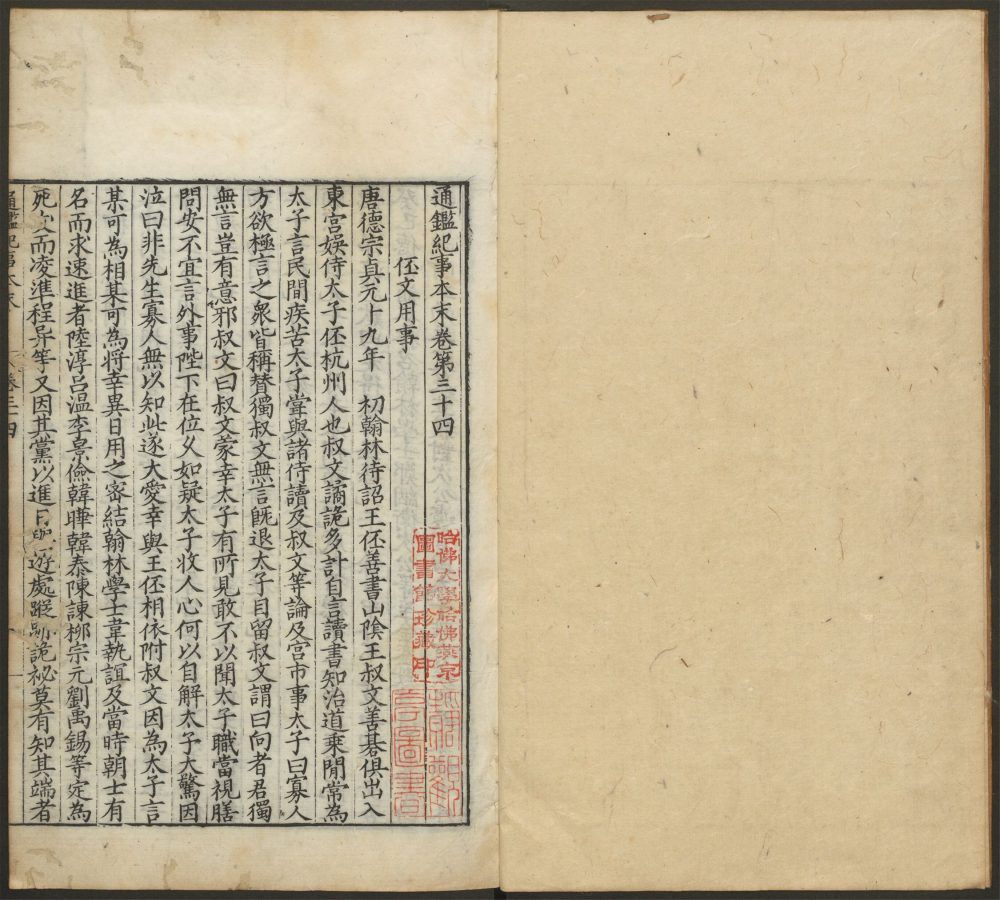 通鑑紀事本末卷第三十四
伾文用事
唐德宗貞元十九年 初翰林待詔王伾善書山陰王叔文善碁俱出入
東宮娛侍太子伾杭州人也叔文譎詭多計自言讀書知治道乗閒常為
太子言民間疾苦太子甞與諸侍讀及叔文等論及宮市事太子曰寡人
方欲極言之衆皆稱賛獨叔文無言旣退太子目留叔文謂曰向者君獨
無言豈有意邪叔文曰叔文蒙幸太子有所見敢不以聞太子職當視膳
問安不宜言外事陛下在位乆如疑太子收人心何以自解太子大驚因
泣曰非先生寡人無以知此遂大愛幸與王伾相依附叔文因為太子言
某可為相某可為將幸異日用之宻結翰林學士韋執誼及當時朝士有
名而求速進者陸淳吕温李景儉韓曄韓泰陳諫栁宗元劉禹錫等定為
死友而凌準程异等又因其黨以進日與遊處蹤跡詭祕莫有知其端者
通鑑紀事本末 卷三十四
哈佛大學哈佛燕京
圖書館珍藏印